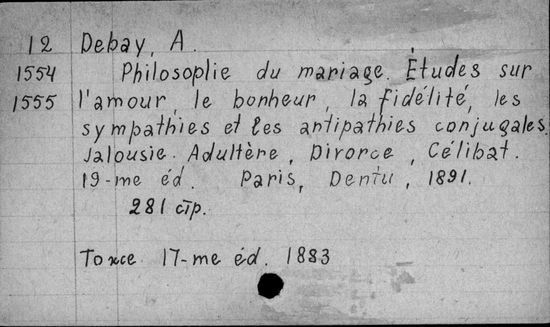 12 Debay, A.
1554 Philosoplie du mariage. Études sur
1555 l'amour, le bonheur, la fidélité, les
sympathies et les antipathies conjugales.
Jalousie. Adultère, Divorce, Célibat.
19-me éd. Paris, Dentu, 1891.
281 стр.
Тоже 17-me éd. 1883